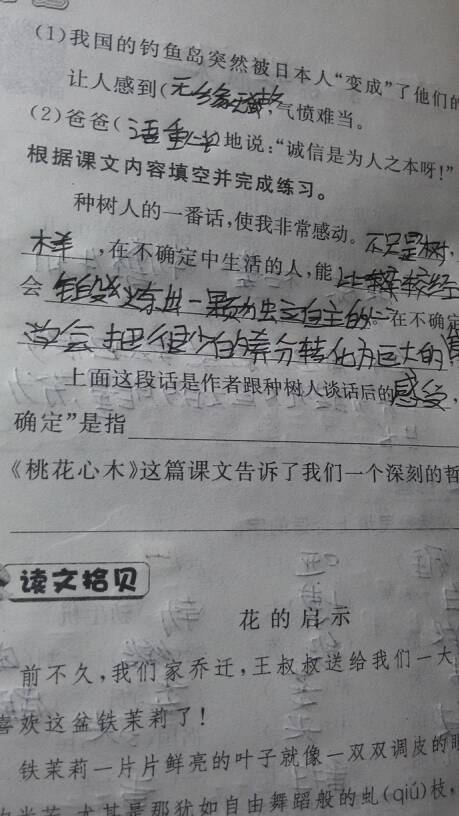 (1)我国的钓鱼岛突然被日本人“变成”了他们的
让人感到(无缘无故,气愤难当。
(2)爸爸(语重心长地说:“诚信是为人之本呀!”
根据课文内容填空并完成练习。
种树人的一番话,使我非常感动。不只是树,
样,在不确定中生活的人,能比较经
会锻炼出一颗独立自主的心。在不确定
学会把很少的养分转化为巨大的
上面这段话是作者跟种树人谈话后的感受,
确定”是指
《桃花心木》这篇课文告诉了我们一个深刻的哲
读文拾贝
花的启示
前不久,我们家乔迁,王叔叔送给我们一大
喜欢这盆铁茉莉了!
铁茉莉一片片鲜亮的叶子就像一双双调皮的眼
尤其是那犹如自由舞蹈般的虬(qiú)枝,